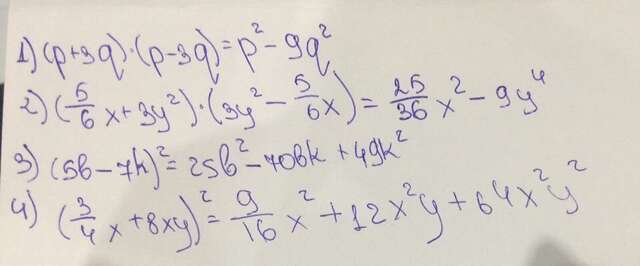 1) (p+3q)·(p-3q)=p²-9q²
2) (5/6 x+3y²)·(3y²-5/6x)=25/36 x²-9y⁴
3) (5b-7k)²=25b²-70bk+49k²
4) (3/4 x+8xy)²=9/16 x²+12x²y+64x²y²